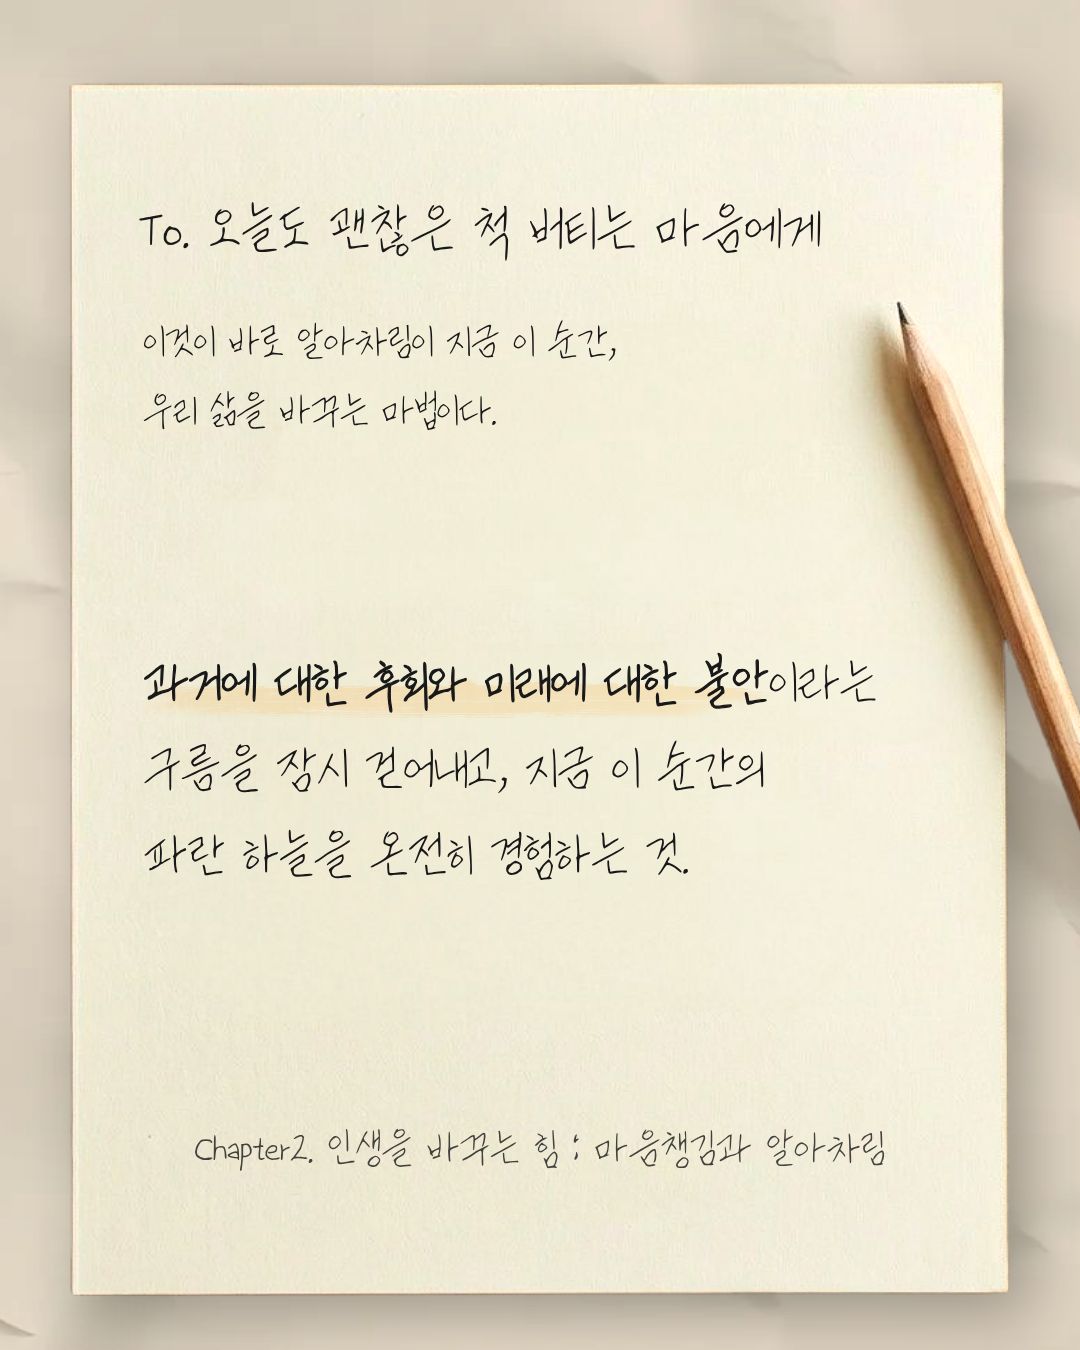 To. 오늘도 괜찮은 척 버티는 마음에게
이것이 바로 알아차림이 지금 이 순간,
우리 삶을 바꾸는 마법이다.
과거에 대한 후회와 미래에 대한 불안이라는
구름을 잠시 걷어내고, 지금 이 순간의
파란 하늘을 온전히 경험하는 것.
Chapter2. 인생을 바꾸는 힘 ; 마음챙김과 알아차림